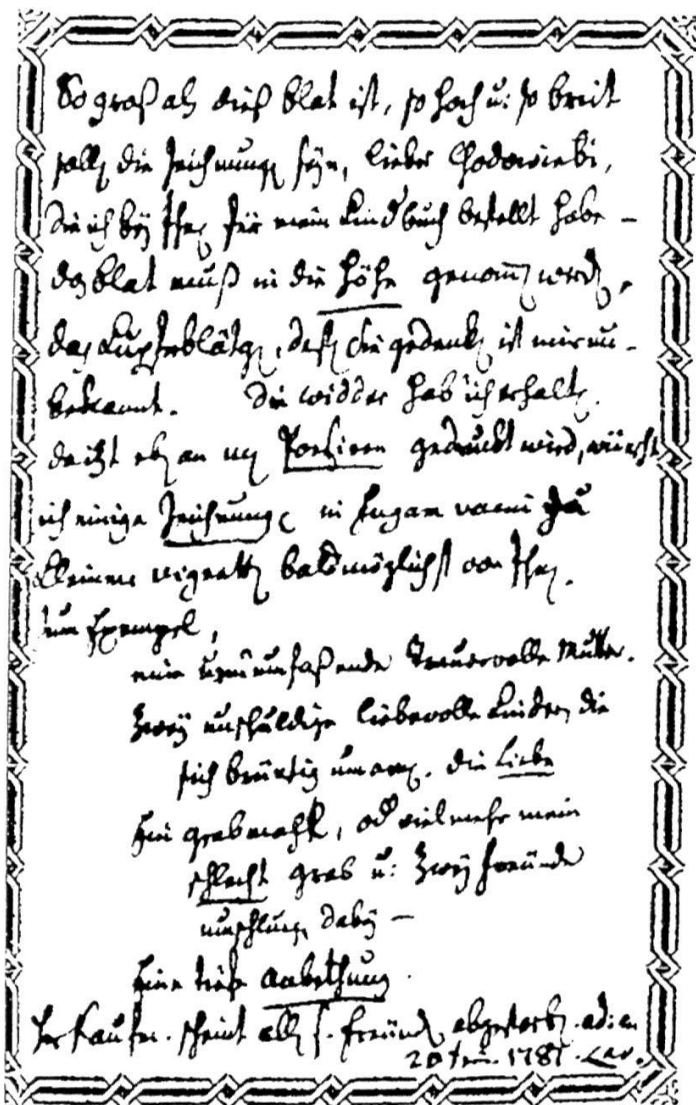 So groß als dieß blat ist, so hoch u: so breit
solle die Zeichnung seyn, lieber Chodowieki,
die ich bey Ihne für mein Kindbuch bestellt habe –
das blat muß in die Höhe genom werd,
das Kupferblätg, deß die gedenk ist mir un-
bekannt. Die widder hab ich erhalt.
da itzt eb an gedruckt wird, wünscht
ich einige Zeichnung in zu
kleinen vignett baldmöglichst von Ihne.
Zum Exempel,
eine umfaßende Trauervolle Mutter.
Zwey unschuldige liebevolle Kinder, die
sich brünstig umarm. die Liebe
Ein grabmahl, od vielmehr mein
schlecht grab u: Zwey freunde
umschlung daby –
Eine tiefe Anbethung.
Hr Kaufm. scheint all s. freund abgestorb. ad:
20 1781. Lav.